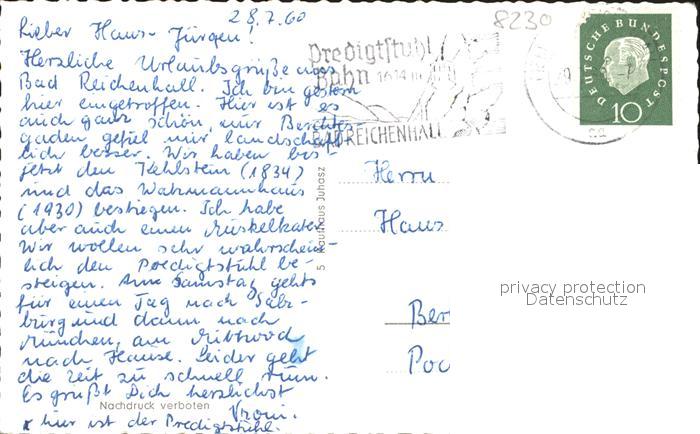 28.7.60
Lieber Hans-Jürgen!
Herzliche Urlaubsgrüße aus
Bad Reichenhall. Ich bin gestern
hier eingetroffen. Hier ist es
auch ganz schön, nur Berchtes-
gaden gefiel mir landschaft-
lich besser. Wir haben bis
jetzt den Kehlstein (1834)
und das Watzmannhaus
(1930) bestiegen. Ich habe
aber auch einen Muskelkater.
Wir wollen sehr wahrschein-
lich den Predigtstuhl be-
steigen. Am Samstag gehts
für einen Tag nach Salz-
burg und dann nach
München, am Mittwoch
nach Hause. Leider geht
die Zeit zu schnell rum.
Es grüßt Dich herzlichst
Vroni.
x hier ist der Predigtstuhl.
Nachdruck verboten
5 Kaufhaus Juhasz
Predigtstuhl
Bahn 1614 m
BAD REICHENHALL
8230
DEUTSCHE BUNDESPOST
10
Herrn
Hans
Ber
Poc
privacy protection
Datenschutz